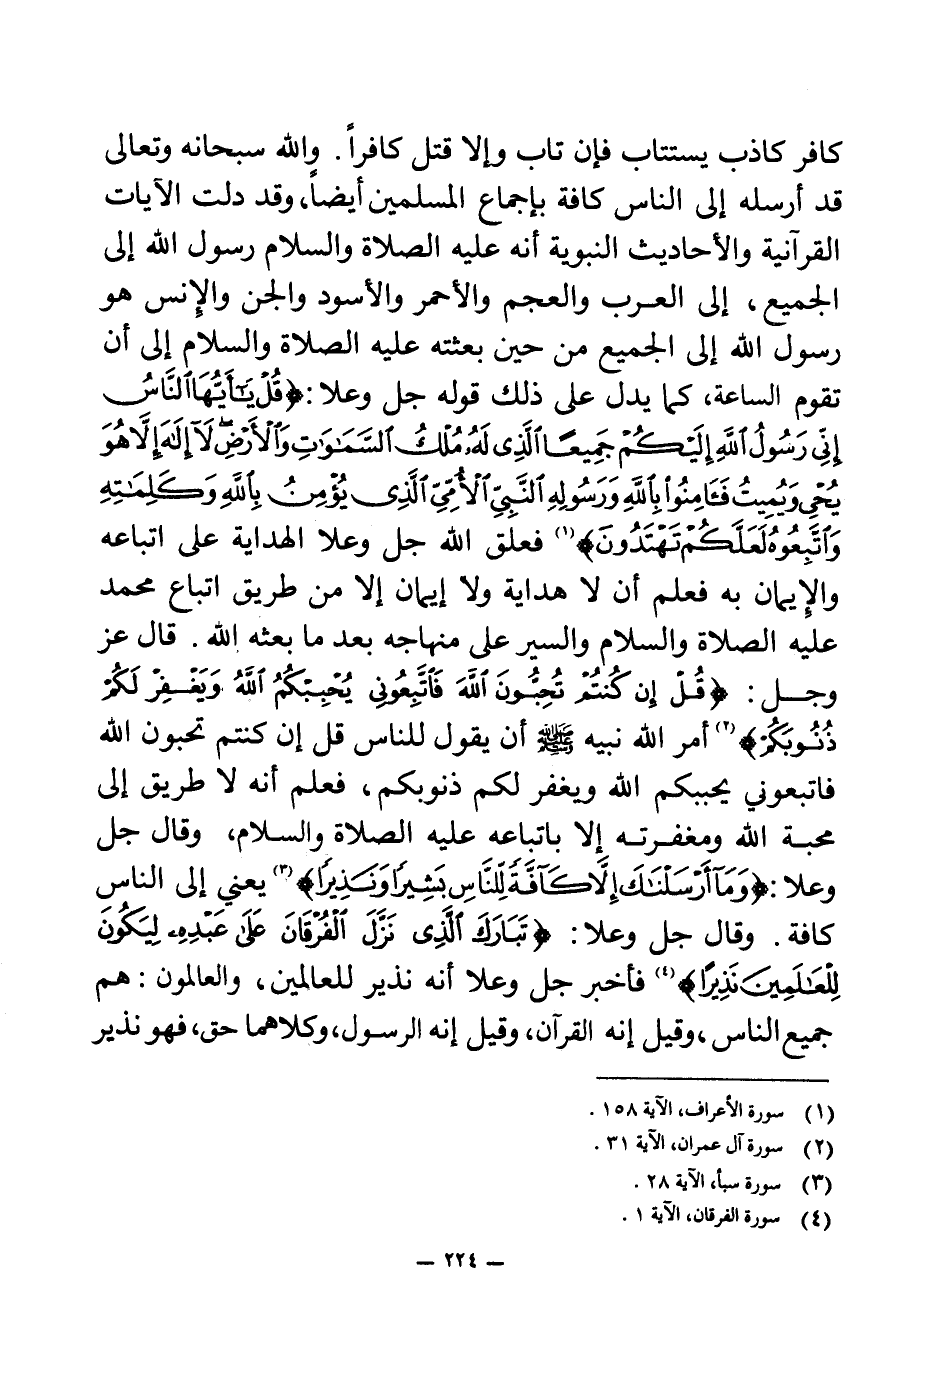 كافر كاذب يستتاب فإن تاب وإلا قتل كافراً. والله سبحانه وتعالى
قد أرسله إلى الناس كافة بإجماع المسلمين أيضاً، وقد دلت الآيات
القرآنية والأحاديث النبوية أنه عليه الصلاة والسلام رسول الله إلى
الجميع، إلى العرب والعجم والأحمر والأسود والجن والإنس هو
رسول الله إلى الجميع من حين بعثته عليه الصلاة والسلام إلى أن
تقوم الساعة، كما يدل على ذلك قوله جل وعلا: ﴿قُلْ يَٰٓأَيُّهَا ٱلنَّاسُ
إِنِّي رَسُولُ ٱللَّهِ إِلَيْكُمْ جَمِيعًا ٱلَّذِي لَهُۥ مُلْكُ ٱلسَّمَٰوَٰتِ وَٱلْأَرْضِۖ لَآ إِلَٰهَ إِلَّا هُوَ
يُحْيِۦ وَيُمِيتُ فَـَٔامِنُوا۟ بِٱللَّهِ وَرَسُولِهِ ٱلنَّبِيِّ ٱلْأُمِّيِّ ٱلَّذِى يُؤْمِنُ بِٱللَّهِ وَكَلِمَٰتِهِۦ
وَٱتَّبِعُوهُ لَعَلَّكُمْ تَهْتَدُونَ﴾(١) فعلق الله جل وعلا الهداية على اتباعه
والإيمان به فعلم أن لا هداية ولا إيمان إلا من طريق اتباع محمد
عليه الصلاة والسلام والسير على منهاجه بعد ما بعثه الله. قال عز
وجل: ﴿قُلْ إِن كُنتُمْ تُحِبُّونَ ٱللَّهَ فَٱتَّبِعُونِي يُحْبِبْكُمُ ٱللَّهُ وَيَغْفِرْ لَكُمْ
ذُنُوبَكُمْ﴾(٢) أمر الله نبيه ﷺ أن يقول للناس قل إن كنتم تحبون الله
فاتبعوني يحببكم الله ويغفر لكم ذنوبكم، فعلم أنه لا طريق إلى
محبة الله ومغفرته إلا باتباعه عليه الصلاة والسلام، وقال جل
وعلا: ﴿وَمَآ أَرْسَلْنَٰكَ إِلَّا كَآفَّةً لِّلنَّاسِ بَشِيرًا وَنَذِيرًا﴾(٣) يعني إلى الناس
كافة. وقال جل وعلا: ﴿تَبَارَكَ ٱلَّذِى نَزَّلَ ٱلْفُرْقَانَ عَلَىٰ عَبْدِهِۦ لِيَكُونَ
لِلْعَٰلَمِينَ نَذِيرًا﴾(٤) فأخبر جل وعلا أنه نذير للعالمين، والعالمون: هم
جميع الناس، وقيل إنه القرآن، وقيل إنه الرسول، وكلاهما حق، فهو نذير
(١) سورة الأعراف، الآية ١٥٨.
(٢) سورة آل عمران، الآية ٣١.
(٣) سورة سبأ، الآية ٢٨.
(٤) سورة الفرقان، الآية ١.
— ٢٢٤ —